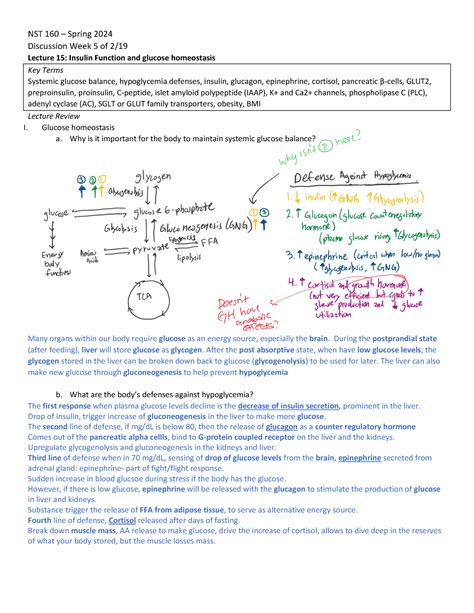 NST 160 – Spring 2024
Discussion Week 5 of 2/19
Lecture 15: Insulin Function and glucose homeostasis
Key Terms
Systemic glucose balance, hypoglycemia defenses, insulin, glucagon, epinephrine, cortisol, pancreatic β-cells, GLUT2,
preproinsulin, proinsulin, C-peptide, islet amyloid polypeptide (IAAP), K+ and Ca2+ channels, phospholipase C (PLC),
adenyl cyclase (AC), SGLT or GLUT family transporters, obesity, BMI
Lecture Review
I. Glucose homeostasis
a. Why is it important for the body to maintain systemic glucose balance?
why isn't ② here?
glycogen
③ ② ①
Glycogenolysis
glucose
glucose 6-phosphate
Glycolysis
Gluconeogenesis (GNG)
① ③
Energy
body
functions
Amino
Acids
pyruvate
lipogenesis
FFA
lipolysis
TCA
Defense Against Hypoglycemia
1. ↓ insulin (↑GNG ↑Glycogenolysis)
2. ↑ Glucagon (glucose counterregulatory
hormone)
(plasma glucose rising ↑Glycogenolysis)
3. ↑ epinephrine (critical when low/no glucagon)
(↑glycogenolysis, ↑GNG)
4. ↑ Cortisol and growth hormone
(not very efficient but goes to ↑
glucose production and ↓ glucose
utilization
Doesn't
GH have
anabolic
effects?
Many organs within our body require glucose as an energy source, especially the brain. During the postprandial state
(after feeding), liver will store glucose as glycogen. After the post absorptive state, when have low glucose levels, the
glycogen stored in the liver can be broken down back to glucose (glycogenolysis) to be used for later. The liver can also
make new glucose through gluconeogenesis to help prevent hypoglycemia
b. What are the body's defenses against hypoglycemia?
The first response when plasma glucose levels decline is the decrease of insulin secretion, prominent in the liver.
Drop of insulin, trigger increase of gluconeogenesis in the liver to make more glucose.
The second line of defense, if mg/dL is below 80, then the release of glucagon as a counter regulatory hormone
Comes out of the pancreatic alpha cellls, bind to G-protein coupled receptor on the liver and the kidneys.
Upregulate glycogenolysis and gluconeogenesis in the liver and kidneys.
Third line of defense when in 70 mg/dL, sensing of drop of glucose levels from the brain, epinephrine secreted from
adrenal gland: epinephrine- part of fight/flight response.
Sudden increase in blood glucose during stress if the body has the glucose.
However, if there is low glucose, epinephrine will be released with the glucagon to stimulate the production of glucose
in liver and kidneys.
Substance trigger the release of FFA from adipose tissue, to serve as alternative energy source.
Fourth line of defense, Cortisol released after days of fasting.
Break down muscle mass, AA release to make glucose, drive the increase of cortisol, allows to dive deep in the reserves
of what your body stored, but the muscle losses mass.